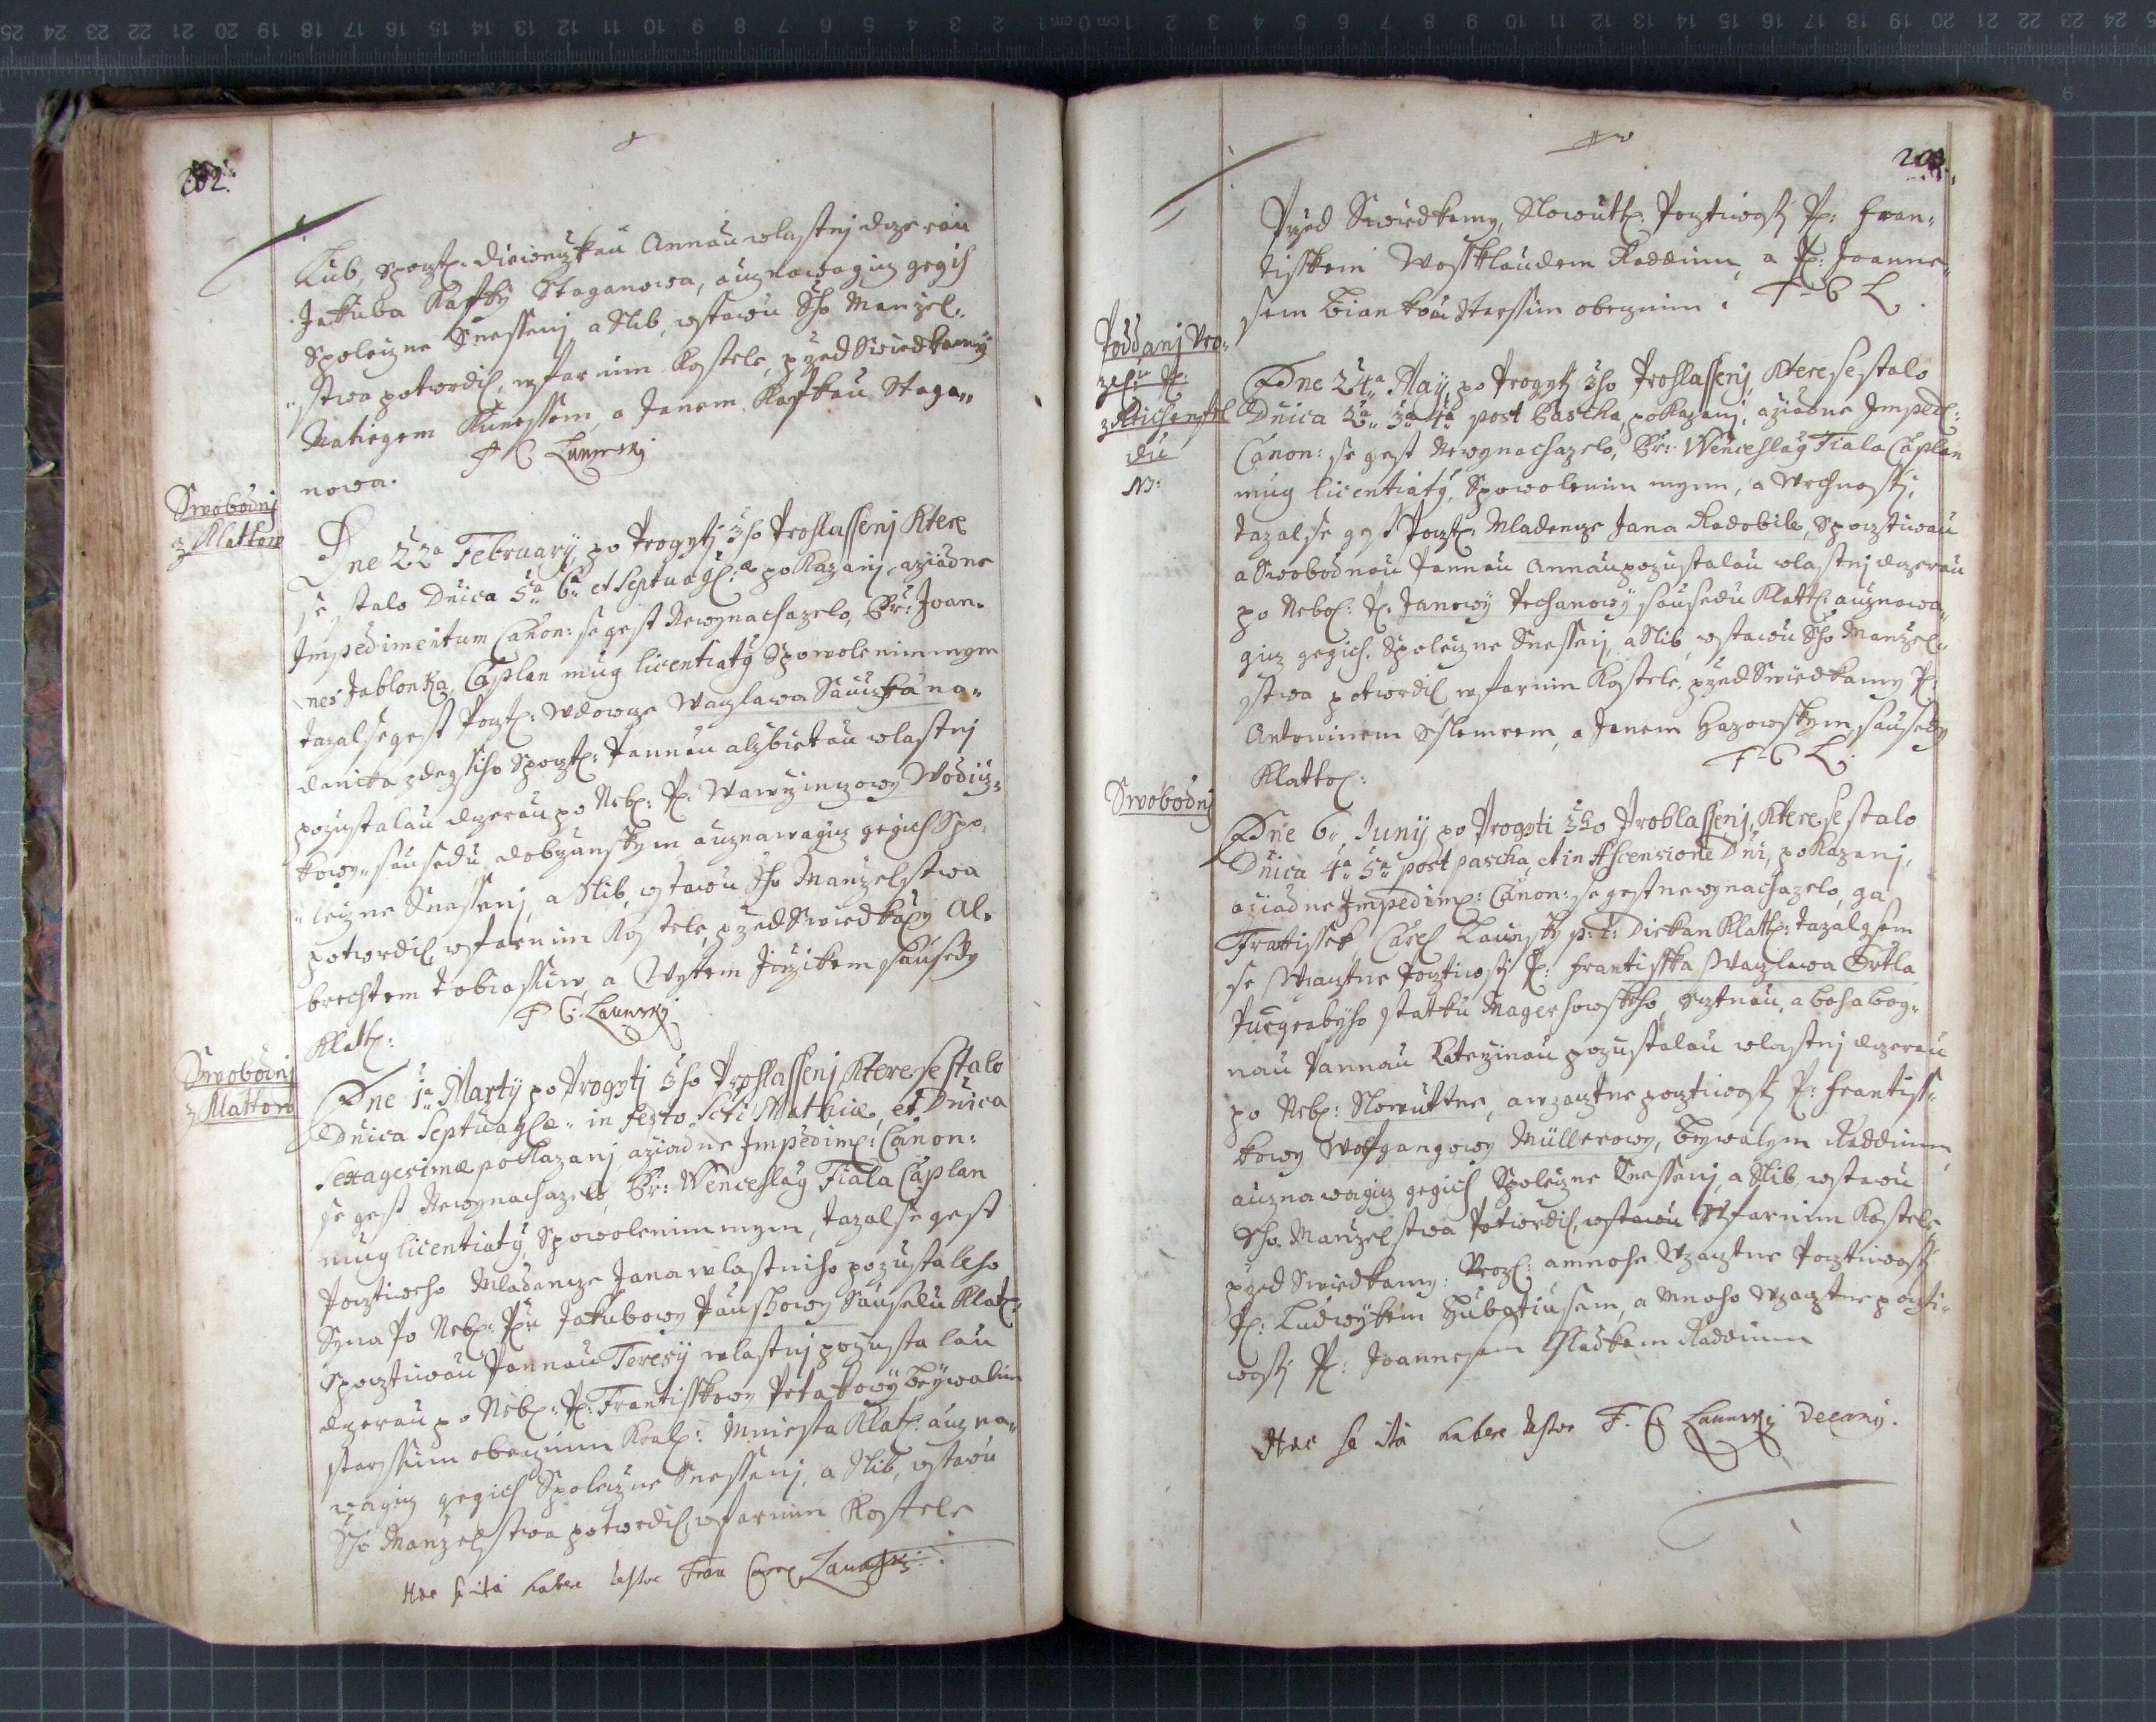 202.
Lub, spoczt: diewcziczkau Annau wlastnj dczerau
Jakuba Kafky Staganowa, aucznawagicz gegich
Spoleczne Snessenj a Slib, wstawu Sho Manzel:
stwa potwrdil, wfarnim Kostele, przed Swiedkamj
Matiegem Kunessem, a Janem Kafkau Staga„
nowa. F C Launsky
Swobodnj
z Klattow
Dne 22a February, po Progytj 3ho Prohlassenj Ktere
se stalo Dnica 5a 6a et Septuagl:æ po Kazanj, a ziadne
Impedimentum Canon: se gest Newynachazelo, Br: Joan„
nes Jablonka, Caplan mug licentiatÿ Spowolenim mym
tazal se gest Poczt: Wdowcze Waczlawa
danika zdegssiho Spoczt: Pannau alzbietau wlastnj
pozustalau dczerau po Neb: P: Wawrzinczowy Wodicz„
kowy„ sausedu dobrzanskym aucznawagicz gegich Spo„
„leczne Snessenj, a Slib, wstawu Sho Manzelstwa
potwrdil, wfarnim Kostele, przed Swiedkamy Al„
brechtem Tobiassem, a Wytem Jirzikem sausedy
Klatt: F C: Launsky
Swobodnj
z Klattow
Dne 1a Marty po Progytj 3ho Prohlassenj, Ktere se stalo
Dnica Septuaglæ„ in festo Scti Mathiæ, et Dnica
Sexagesimæ po Kazanj, a ziadne Impedim: Canon:
se gest Newynachazelo, Br: Wenceslaÿ Fiala Caplan
mug licentiatÿ, Spowolenim mym, tazal se gest
Pocztiweho Mladencze Jana wlastniho pozustaleho
Syna Po Neb: P: Jakubowy Paushowy Sausedu Klat:
Spocztiwau Pannau Teresÿ wlastnj pozustalau
dczerau po Neb: P: Frantisskowy Petakowÿ beÿwalim
starssim obecznim Kral: Miesta Klat: auczna„
wagicz gegich Spoleczne Snessenj, a Slib, wstawu
Sho Manzelstwa potwrdil, wfarnim Kostele
Hæc se ita habere testor Fran Carol Launsky
203.
Przed Swiedkamy, Slowutt: Pocztiwosti P: Fran„
tisskem Wosstklaudem Raddnim, a P: Joanne„
sem Biankau Starssim obecznim: F C L.
Poddanj Uro„
zel: P:
z Reichenfel
du
N:
Dne 24a Maÿ, po Progytj 3ho Prohlassenj, Ktere se stalo
Dnica 2a 3a 4a post Pascha, po Kazanj, a ziadne Imped:
Canon: se gest Newynachazelo, Br: Wenceslaÿ Fiala Caplan
mug licentiatÿ, Spowolenim mym, a Wrchnostj,
tazal se gest Poczt: Mladencze Jana Radobile, Spocztiwau
a Swobodnau Pannau Annau pozustalau wlastnj dczerau
po Nebo: P: Janowÿ Pechanowÿ sausedu Klatt: aucznawa„
gicz gegich Spoleczne Snessenj, a Slib, wstawu Sho Manzel„
stwa potwrdil, wfarnim Kostele, przed Swiedkamy P:
Antoninem Sslemrem, a Janem Hazowskym, sausedy
Klatto: F C L.
Swobodnj
Dne 6„ Junij po Progyti 3ho Prohlassenj, Ktere se stalo
Dnica 4a 5a post pascha, et in Ascensione Dni, po Kazanj,
a ziadne Impedim: Canon: se gest newynachazelo, ga
Frattissek Carel Launsky p: t: Diekan Klatt: tazal gsem
se Wzactne Pocztiwostj P: Frantisska Waczlawa Ortla
Purgrabyho statku Magerhowskeho, Sctnau, a bohabog„
nau Pannau Katerzinau pozustalau wlastnj dczerau
po Neb: Slowuttne, a wzactne pocztiwosty P: Frantiss„
kowy Wolfgangowy Müllerowy, beywalym Raddnim,
aucznawagicz gegich Spoleczne Snessenj, a Slib, wstawu
Sho. Manzelstwa Potwrdil, wstawu Wfarnim Kostele
przed Swiedkamy: Urozl: amnohe Wzactne Pocztiwosti
P: Ludwÿkem Hubatiusem, a Mnoho Wzactne poczti„
wosti P: Joannesem Hladkem Raddnim
Hæc se ita habere testor F. C. Launsky Decany.